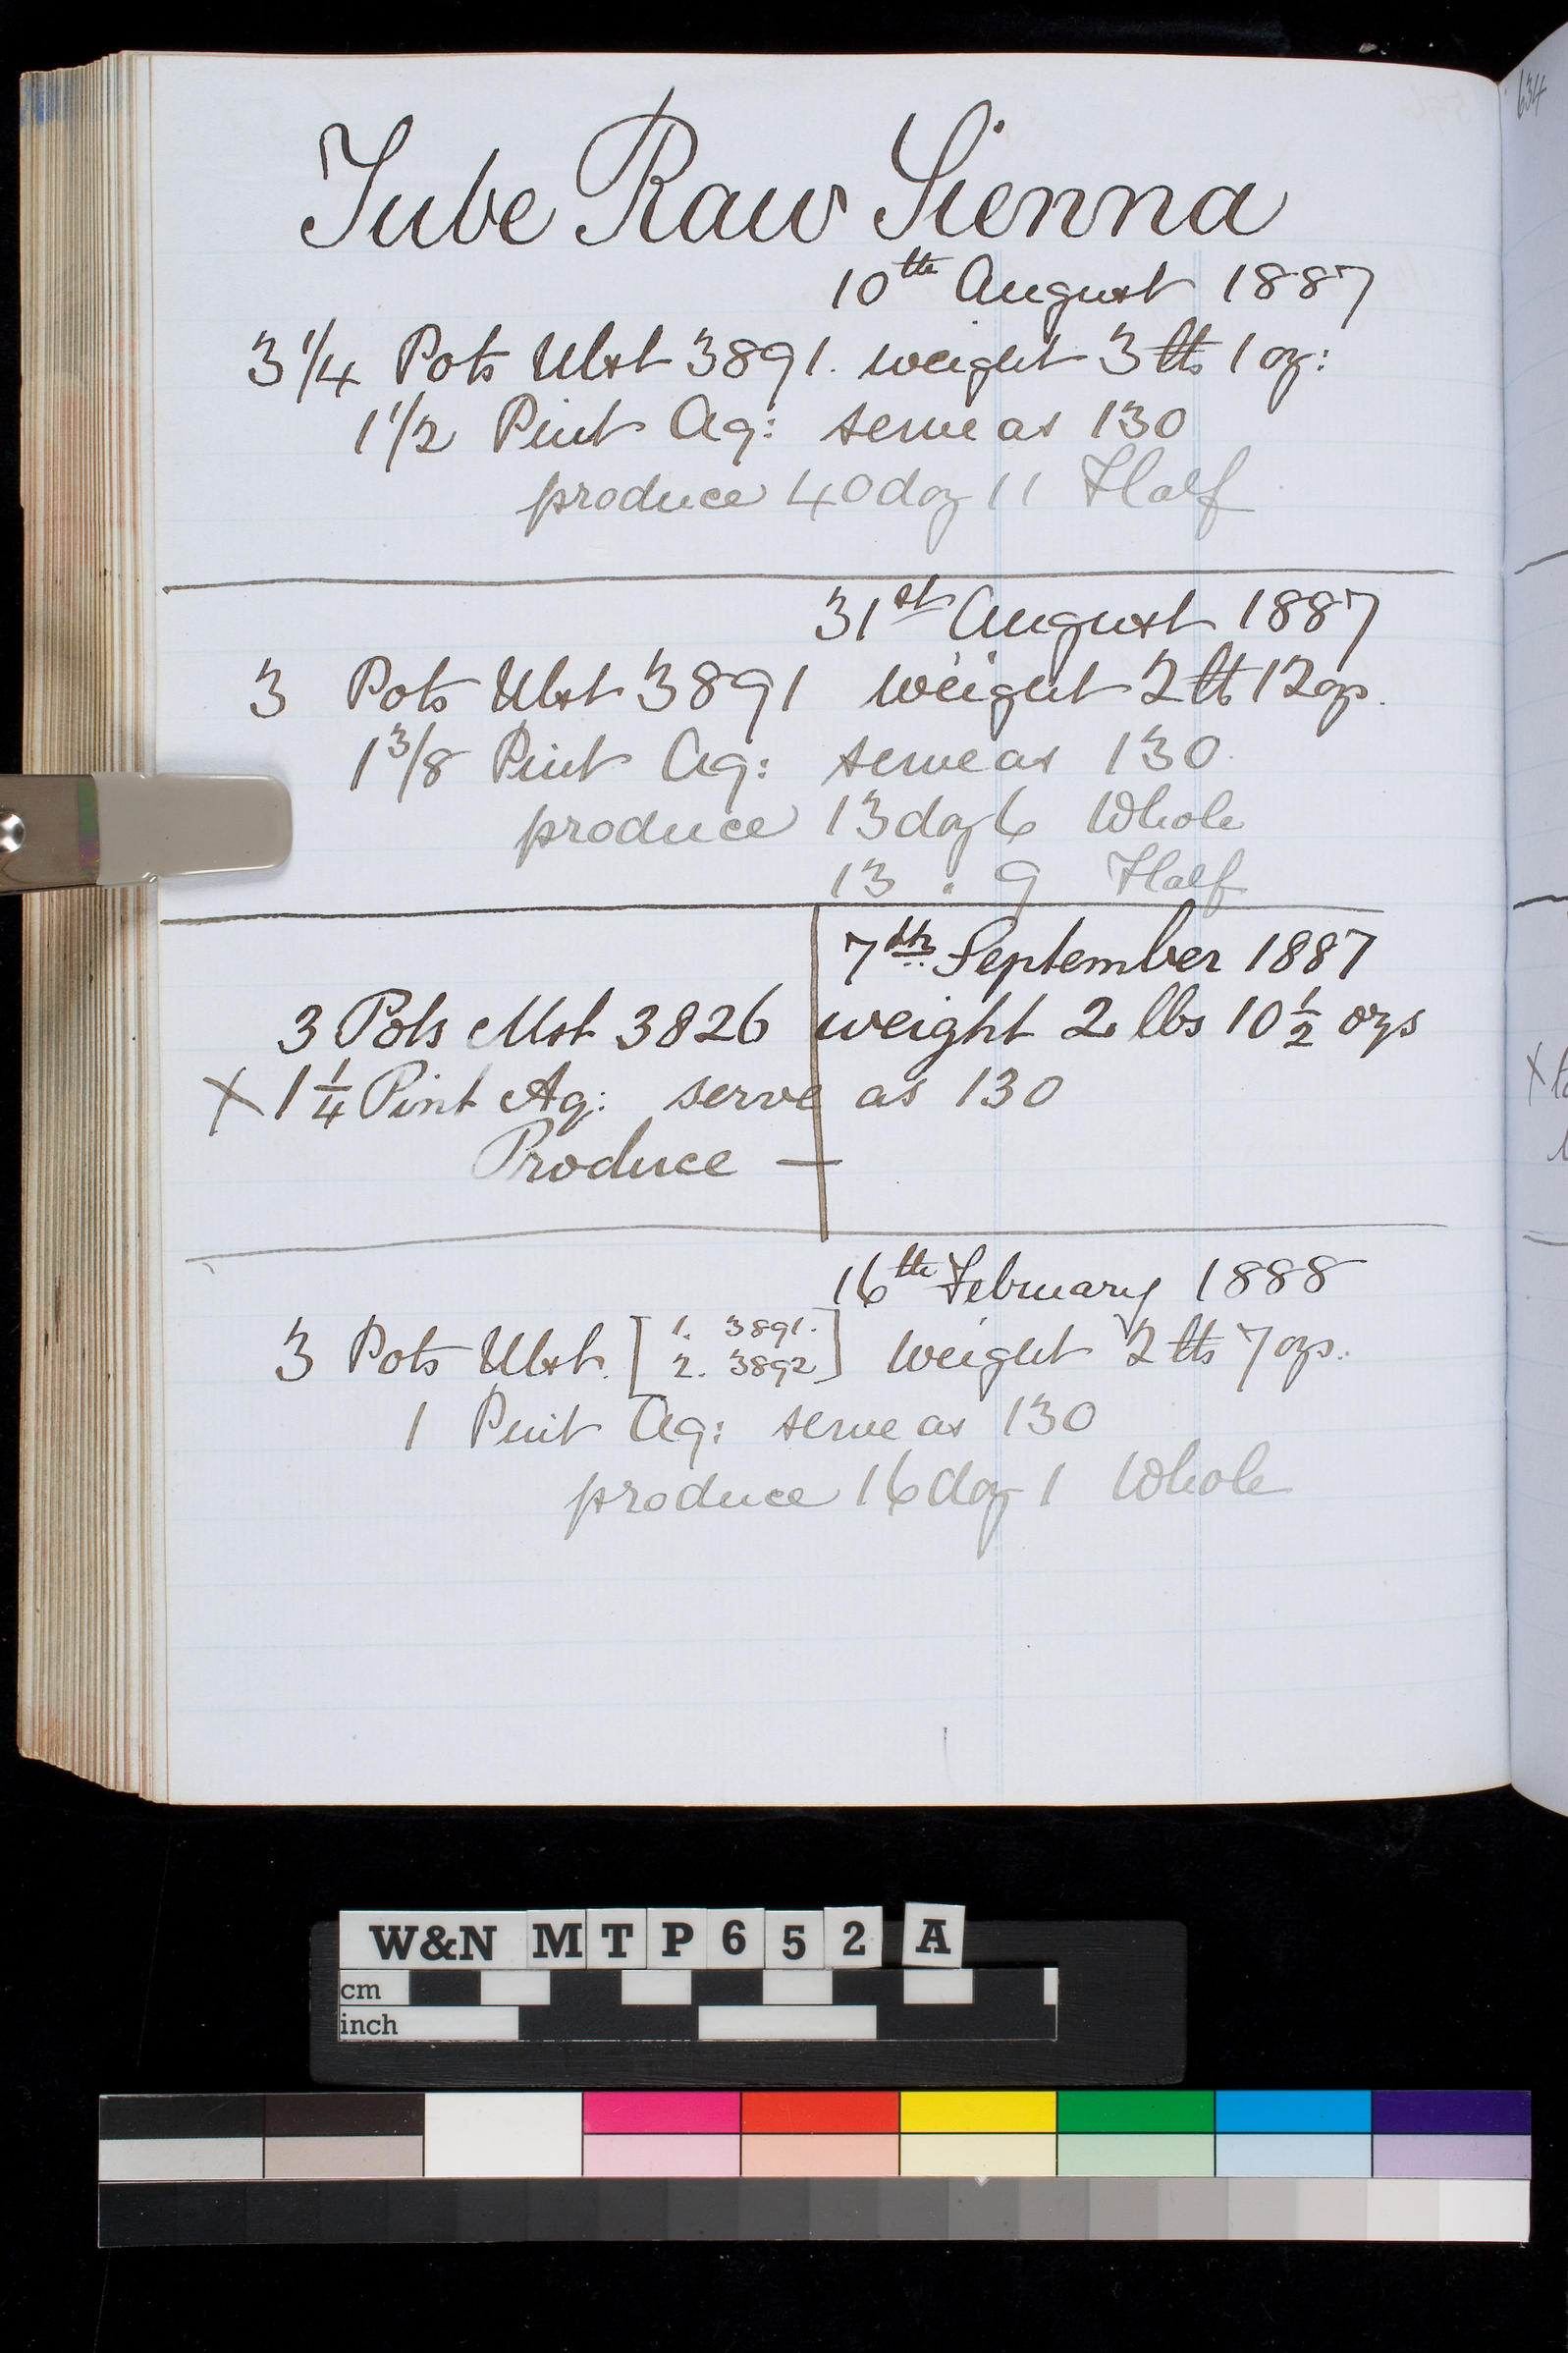 Tube Raw Sienna
10th August 1887
3 1/4 Pots Ulst 3891. weight 3 lbs 1 oz:
1 1/2 Pint Aq: serve as 130
produce 40 doz 11 Half
31st August 1887
3 Pots Ulst 3891 weight 2 lbs 12 ozs.
1 3/8 Pint Aq: serve as 130.
produce 13 doz 6 Whole
13 . 9 Half
7th September 1887
3 Pots Mst 3826 weight 2 lbs 10 1/2 ozs
X 1 1/4 Pint Aq: serve as 130
Produce —
16th February 1888
3 Pots Ulst. [1. 3891. 2. 3892] weight 2 lbs 7 ozs.
1 Pint Aq: serve as 130
produce 16 doz 1 Whole
634
W&N MTP652 A
cm
inch